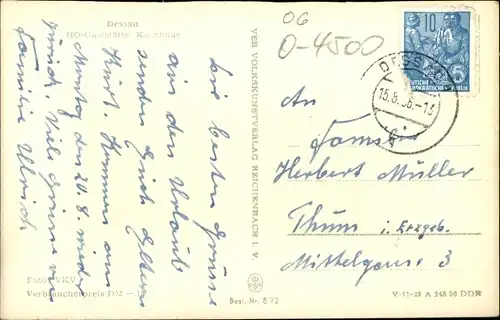 Dessau
HO-Gaststätte Kornhaus
Die besten Grüsse
aus den Urlaub
senden Euch Eltern
Kurt. Kommen am
Montag den 20.8. wieder
zurück. Viele Grüsse von
Familie Ulrich
Foto: VKV
Verbraucherpreis DM
VEB VOLKSKUNSTVERLAG REICHENBACH I. V.
Best.-Nr. B 72
06
O-4500
10
DEUTSCHE
DEMOKRATISCHE REPUBLIK
DESSAU
15.8.56.-13
An
Familie
Herbert Müller
Thum i. Erzgeb.
Mittelgasse 3
V-11-28 A 248 56 DDR